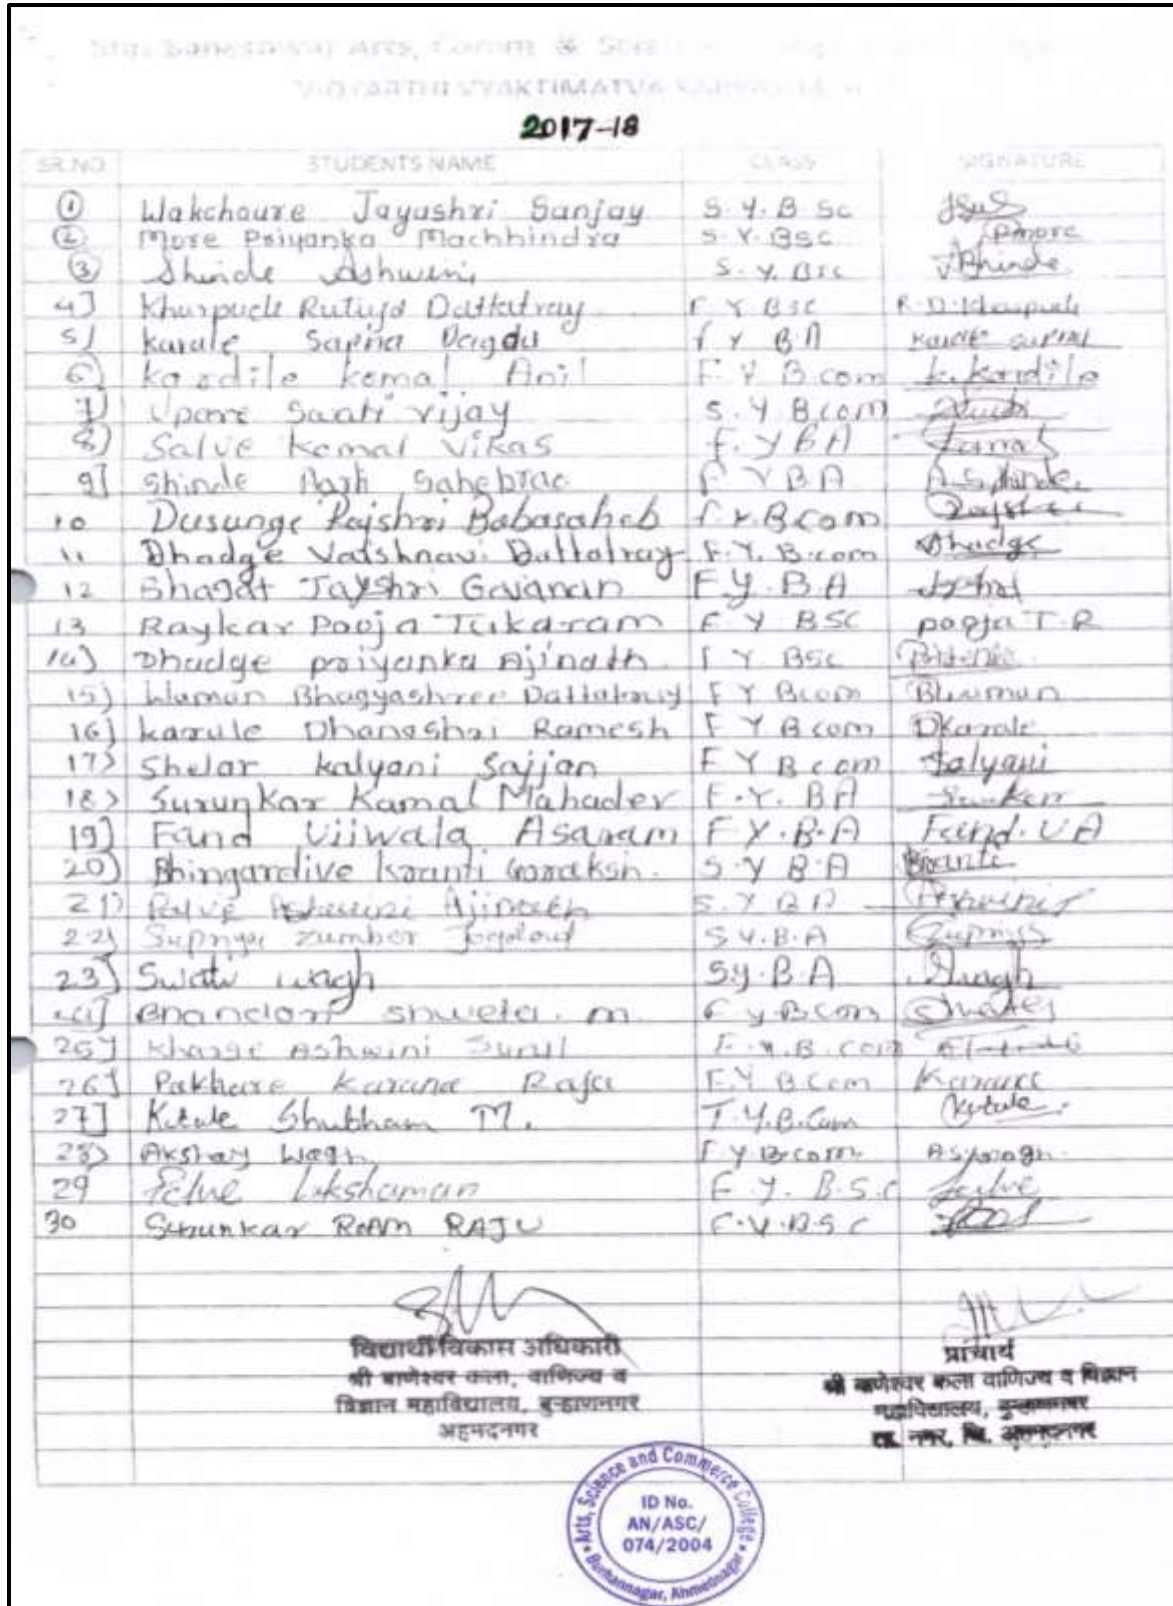 Arts, Comm & Science
VIDYARTHI VYAKTIMATVA
2017-18
SR.NO STUDENTS NAME CLASS SIGNATURE
① Wakchoure Jayashri Sanjay S.Y.B.Sc
② More Priyanka Machhindra S.Y.BSc Pmore
③ Shinde Ashwini S.Y.BSc Shinde
4] Khurpude Rutuja Dattatray F Y BSC R.D.Khurpude
5) Karale Sapna Dagdu F Y B A Karale
6) kardile komal Anil F.Y B.com k.kardile
7) Upare Swati vijay S.Y B.com
8) Salve Komal Vikas F.Y B A
9] Shinde Sahebrao F Y B A A.S.Shinde
10 Dusunge Rajshri Babasaheb F.Y.B.Com Rajshri
11 Dhadge Vaishnavi Dattatray F.Y.B.com Dhadge
12 Bhagat Jayshri Gajanan F.Y.B.A
13 Raykar Pooja Tukaram F Y BSC pooja T.R
14) Dhadge priyanka Ajinath F Y BSc
15) Waman Bhagyashree Dattatray F Y Bcom Bwaman
16) karale Dhanashri Ramesh F Y B com Dkarale
17) Shelar kalyani Sajjan F Y B com kalyani
18) Surunkar Kamal Mahadev F.Y. BA
19] Fand Ujjwala Asaram F.Y.B.A Fand.U A
20) Bhingardive Kranti Goraksh. S.Y B.A Kranti
21) Ajinath S.Y B A
22) Zumber S.Y.B.A
23] Swati wagh S.y.B A Swagh
24] Bhandari shweta. m. F y B.Com
25] Kharge Ashwini Sunil F.Y.B.com
26] Pakhare Karuna Raju F.Y B.Com Karuna
27] Kutule Shubham M. T.Y.B.Com Kutule
28) Akshay Wagh F Y B.com
29 Palve Lakshaman F.Y. B.S.C Palve
30 Surunkar RAM RAJU F.Y.B.S.C
विद्यार्थी विकास अधिकारी
श्री बाणेश्वर कला, वाणिज्य व
विज्ञान महाविद्यालय, बुऱ्हाणनगर
अहमदनगर
प्राचार्य
श्री बाणेश्वर कला वाणिज्य व विज्ञान
महाविद्यालय, बुऱ्हाणनगर
ता. नगर, जि. अहमदनगर
Arts, Science and Commerce College
ID No.
AN/ASC/
074/2004
Burhannagar, Ahmednagar